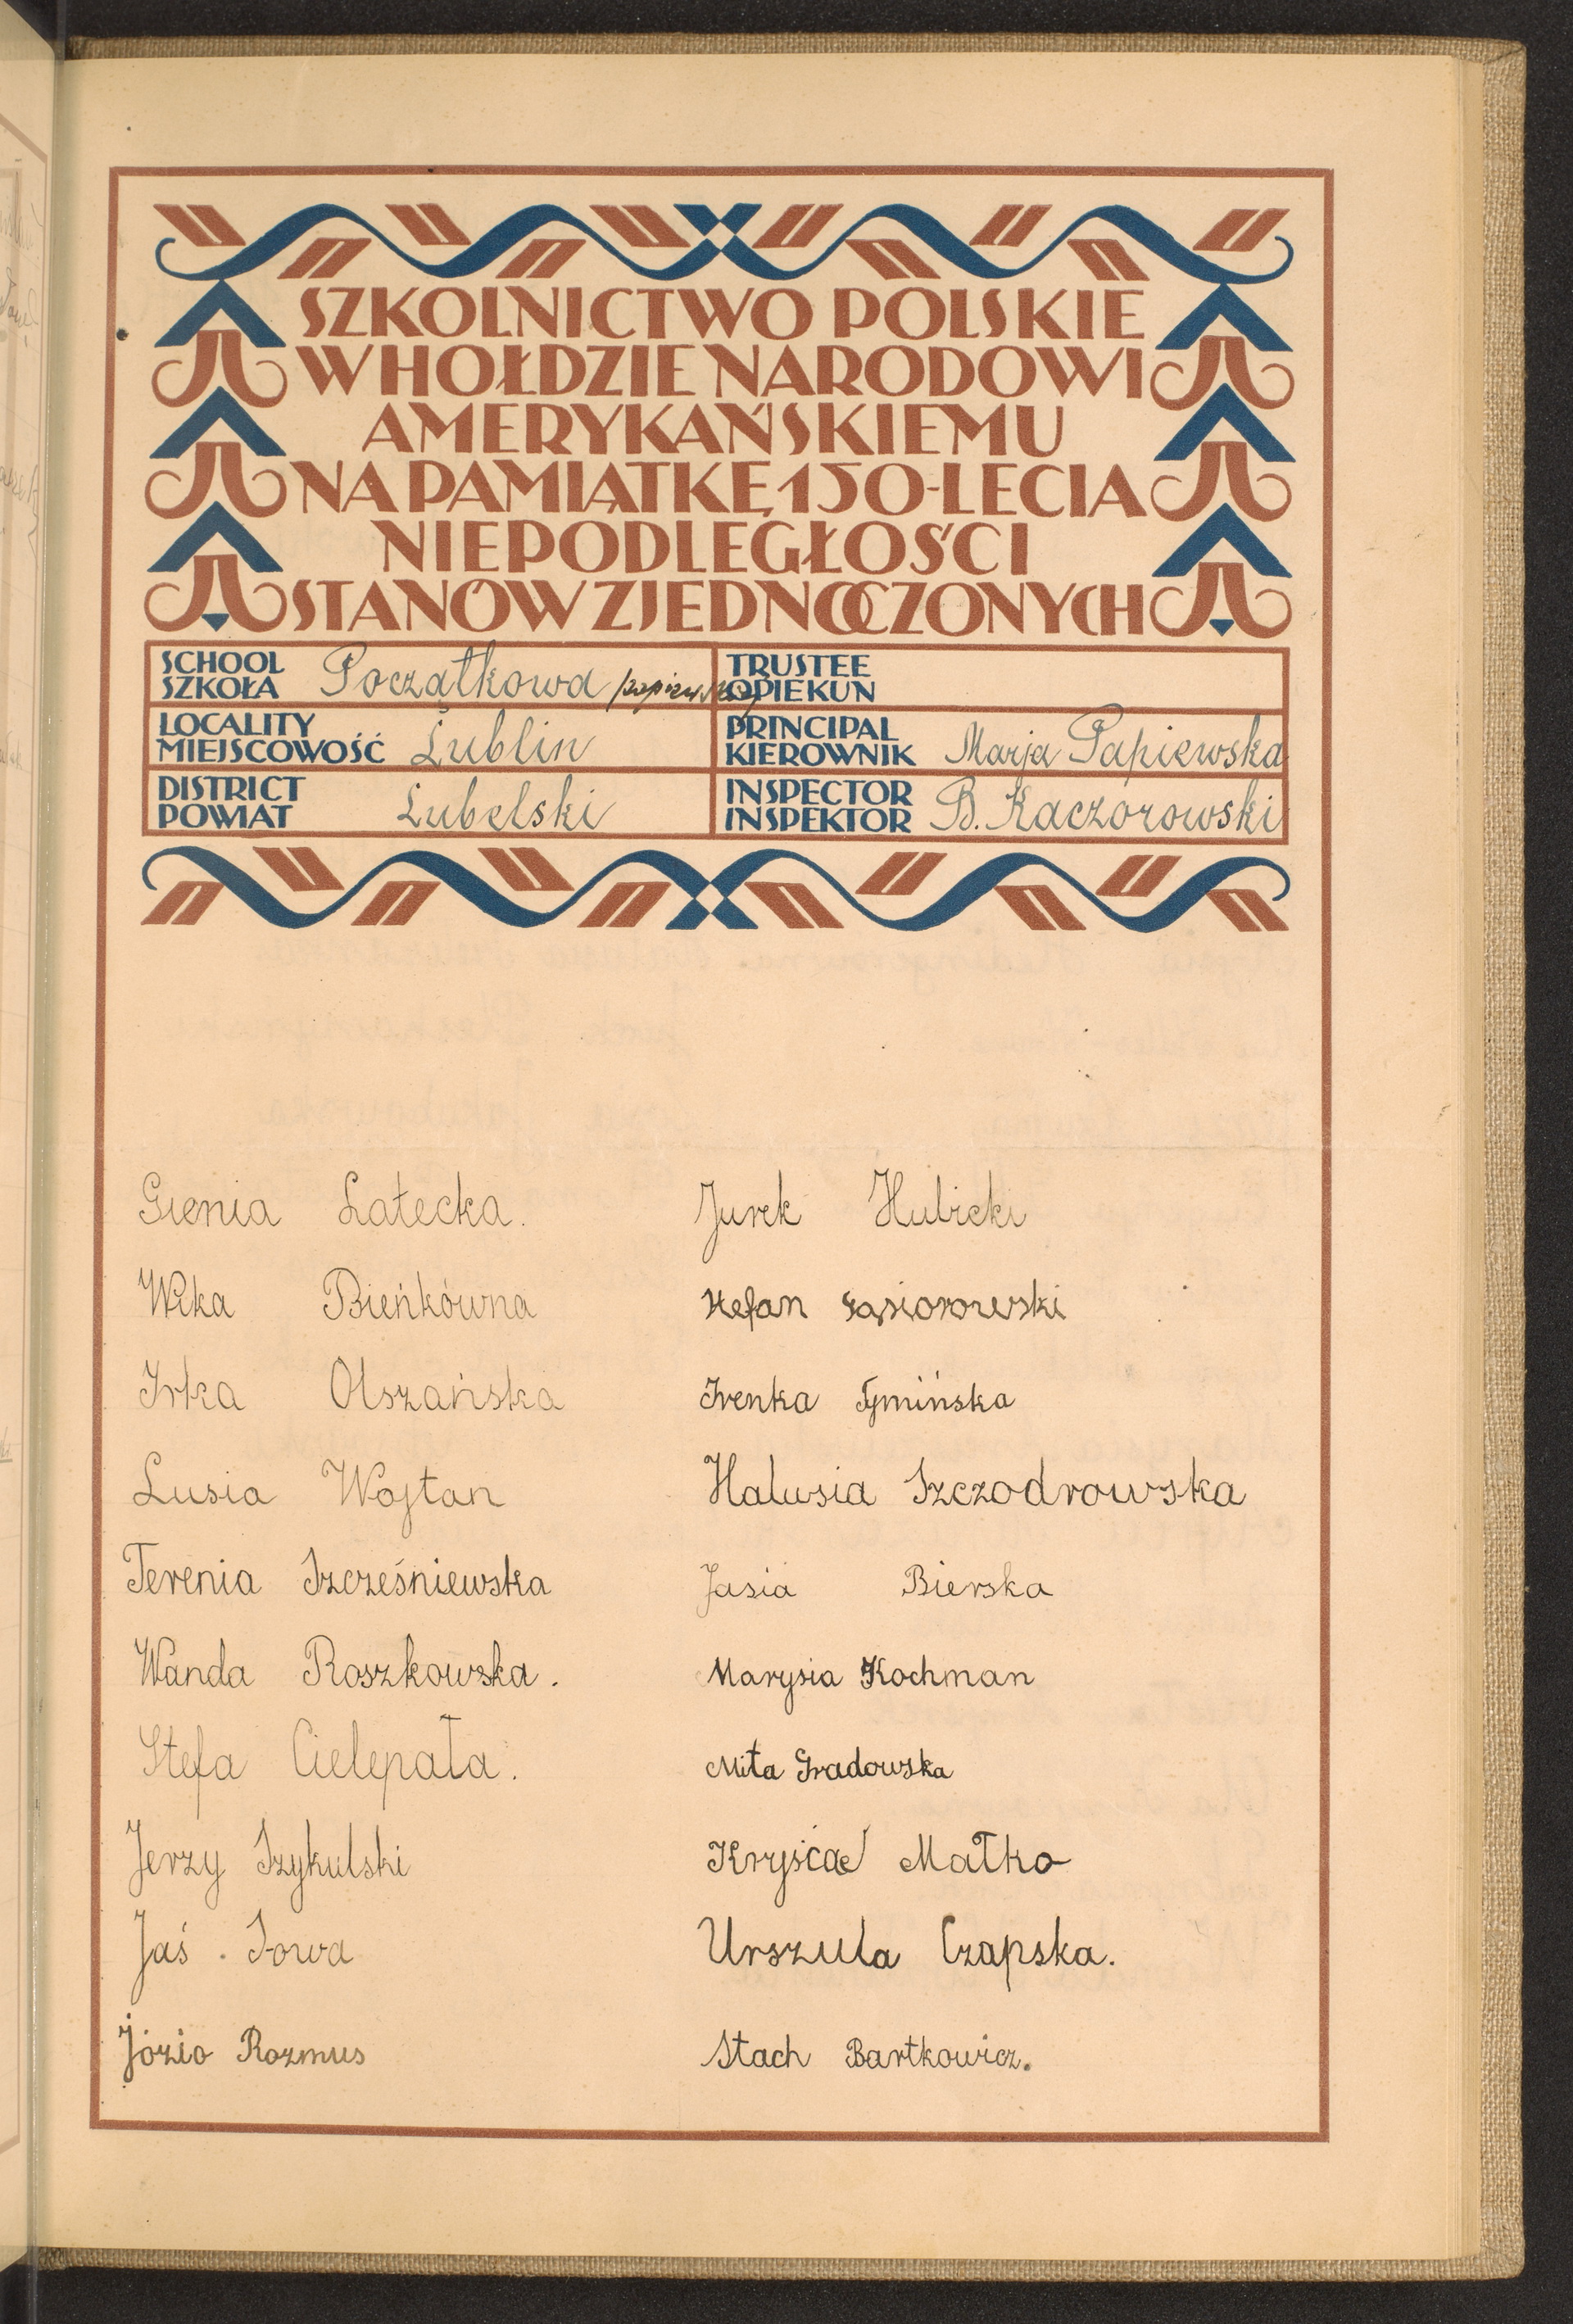 SZKOLNICTWO POLSKIE
W HOŁDZIE NARODOWI
AMERYKAŃSKIEMU
NA PAMIĄTKĘ 150-LECIA
NIEPODLEGŁOŚCI
STANÓW ZJEDNOCZONYCH
SCHOOL
SZKOŁA Początkowa
TRUSTEE
OPIEKUN
LOCALITY
MIEJSCOWOŚĆ Lublin
PRINCIPAL
KIEROWNIK Marja Papiewska
DISTRICT
POWIAT Lubelski
INSPECTOR
INSPEKTOR B. Kaczorowski
Gienia Łatecka.
Wika Bieńkówna
Irka Olszańska
Lusia Wojtan
Terenia Szcześniewska
Wanda Roszkowska.
Stefa Cielepała.
Jerzy Szykulski
Jaś . Sowa
Józio Rozmus
Jurek Hubicki
Stefan Gąsiorowski
Irenka Tymińska
Halusia Szczodrowska
Jasia Bierska
Marysia Kochman
Mita Gradowska
Małko
Urszula Czapska.
Stach Bartkowicz.